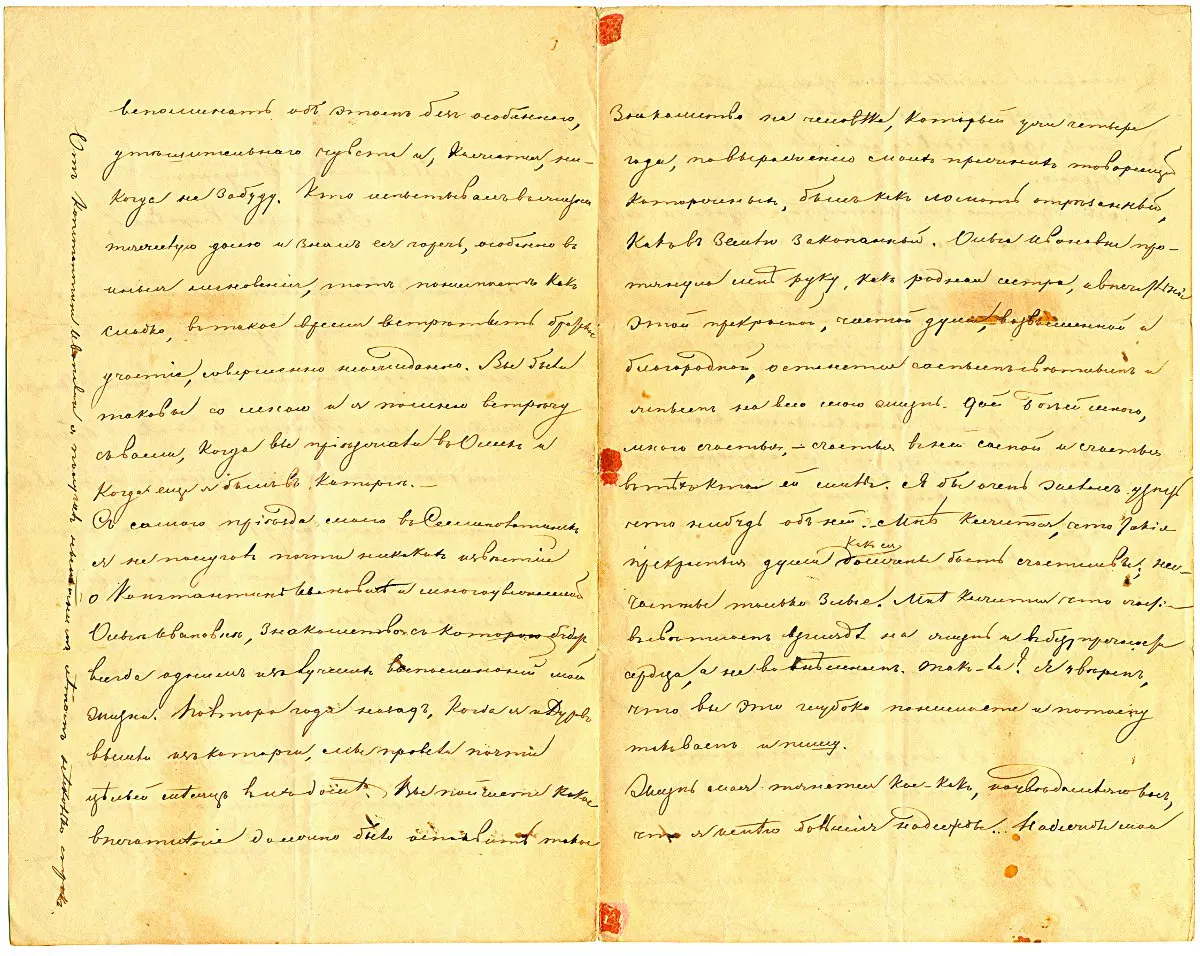 вспоминать объ этомъ безъ особеннаго,
утѣшительнаго чувства и, кажется, ни-
когда не забуду. Кто испытывалъ въ жизни
тяжелую долю и зналъ ея горечь, особенно въ
иныя мгновенія, тотъ понимаетъ какъ
сладко, въ такое время встрѣтить братское
участіе, совершенно неожиданно. Вы были
таковы со мною и я помню встрѣчу
съ вами, когда вы пріѣзжали въ Омскъ и
когда еще я былъ въ каторгѣ. —
Съ самого пріѣзда моего въ Семипалатинскъ
я не получалъ почти никакихъ извѣстій
о Константинѣ Ивановичѣ и многоуважаемой
Ольгѣ Ивановнѣ, знакомство съ которою будетъ
всегда однимъ изъ лучшихъ воспоминаній моей
жизни. Полтора года назадъ, когда я и Дуровъ
вышли изъ каторги, мы провели почти
цѣлый мѣсяцъ въ ихъ домѣ. Вы поймете какое
впечатлѣніе должно было оставить такое
Отъ Константина Ивановича я получилъ нынѣшнимъ лѣтомъ нѣсколько строкъ.
знакомство на человѣка, который уже четыре
года, по выраженію моихъ прежнихъ товарищей
каторжныхъ, былъ какъ ломоть отрѣзанный,
какъ въ землю закопанный. Ольга Ивановна про-
тянула мнѣ руку, какъ родная сестра, и впечатлѣніе
этой прекрасной, чистой души, возвышенной и
благородной, останется самымъ свѣтлымъ и
яснымъ на всю мою жизнь. Дай Богъ ей много,
много счастья, — счастья въ ней самой и счастья
въ тѣхъ кто ей милъ. Я бы очень желалъ узнать
что нибудь объ ней. Мнѣ кажется, что такія
прекрасныя души какъ ея должны быть счастливы; нес-
частны только злые. Мнѣ кажется что счастье
въ свѣтломъ взглядѣ на жизнь и въ безупречности
сердца, а не во внѣшнемъ. Такъ-ли? Я увѣренъ,
что вы это глубоко понимаете и потому
такъ вамъ и пишу.
Жизнь моя тянется кое-какъ, но увѣдомляю васъ,
что я имѣю большія надежды... Надежды мои